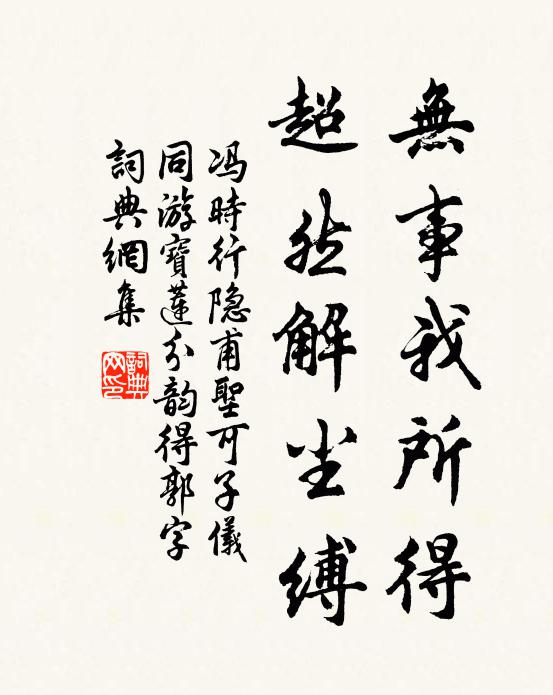 無事我所得
超然解尘缚
冯時行隐甫聖可子儀
同游寶蓮分韵得郭字
詞典網集
詞典网印